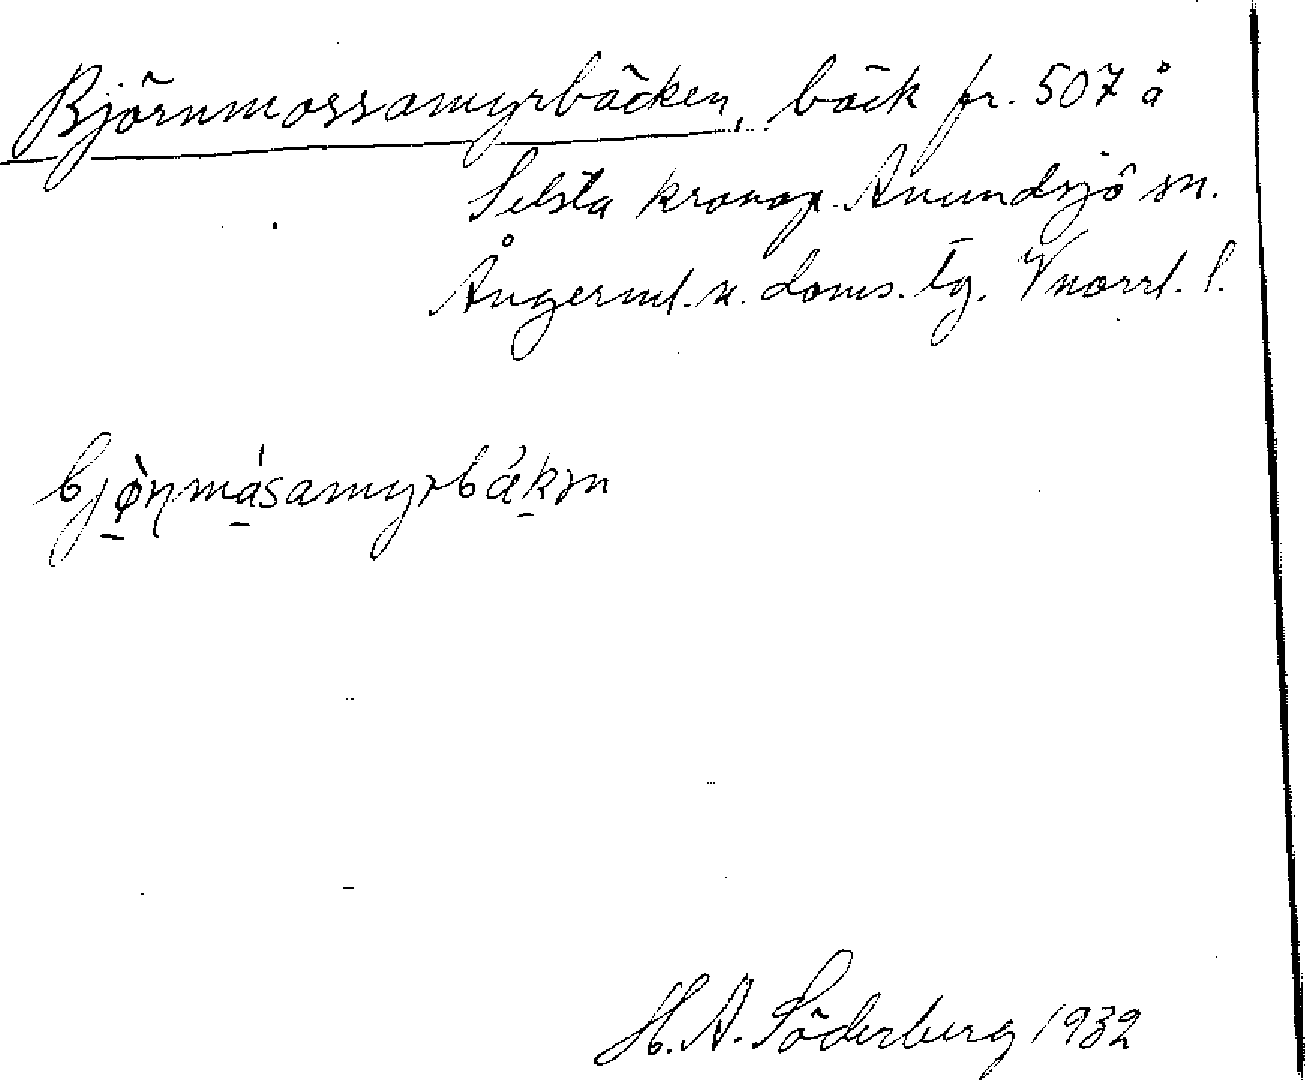 Björnmossamyrbäcken, bäck fr. 507 å
Selsta kronop. Anundsjö sn.
Ångerml. n. doms. tg. Vnorrl. l.
bjø̀ṇmásamyrbáksn
H. A. Söderberg 1932